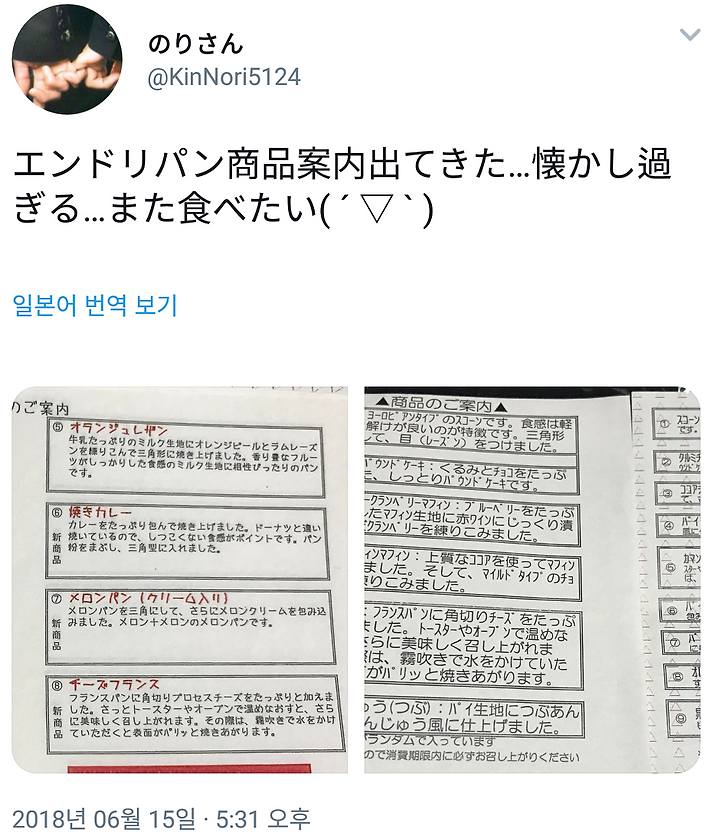 のりさん
@KinNori5124
エンドリパン商品案内出てきた…懐かし過
ぎる…また食べたい(´▽`)
일본어 번역 보기
のご案内
⑤ オランジュレザン
牛乳たっぷりのミルク生地にオレンジピールとラムレーズ
ンを練りこんで三角形に焼き上げました。香り豊なフルー
ツがしっかりした食感のミルク生地に相性ぴったりのパン
です。
⑥ 焼きカレー
新商品
カレーをたっぷり包んで焼き上げました。ドーナツと違い
焼いているので、しつこくない食感がポイントです。パン
粉をまぶし、三角型に入れました。
⑦ メロンパン (クリーム入り)
新商品
メロンパンを三角にして、さらにメロンクリームを包み込
みました。メロン+メロンのメロンパンです。
⑧ チーズフランス
新商品
フランスパンに角切りプロセスチーズをたっぷりと加えま
した。さっとトースターやオーブンで温めなおすと、さら
に美味しく召し上がれます。その際は、霧吹きで水をかけ
ていただくと表面がパリッと焼きあがります。
▲商品のご案内▲
ﾖｰﾛﾋﾟｱﾝﾀｲﾌﾟのスコーンです。食感は軽
解けが良いのが特徴です。三角形
して、目（ﾚｰｽﾞﾝ）をつけました。
ﾊﾟｳﾝﾄﾞｹｰｷ：くるみとﾁｮｺをたっぷ
しっとりﾊﾟｳﾝﾄﾞｹｰｷです。
ｰｸﾗﾝﾍﾞﾘｰﾏﾌｨﾝ：ﾌﾞﾙｰﾍﾞﾘｰをたっぷ
したﾏﾌｨﾝ生地に赤ﾜｲﾝにじっくり漬
ｸﾗﾝﾍﾞﾘｰを練りこみました。
ｨﾝﾏﾌｨﾝ：上質なココアを使ってﾏﾌｨﾝ
ました。そして、ﾏｲﾙﾄﾞﾀｲﾌﾟのﾁｮ
練りこみました。
：ﾌﾗﾝｽﾊﾟﾝに角切りﾁｰｽﾞをたっぷ
ました。ﾄｰｽﾀｰやｵｰﾌﾞﾝで温めな
さらに美味しく召し上がれま
際は、霧吹きで水をかけていた
がﾊﾟﾘｯと焼きあがります。
ゅう(つぶ)：ﾊﾟｲ生地につぶあん
んじゅう風に仕上げました。
ランダムで入っています
ので消費期限内に必ずお召し上がりください
① ｽｺｰﾝ
です。
② ｸﾙﾐ
③ ココア
④ ﾊﾟｲ
⑤
⑥
⑦
⑧
⑨
2018년 06월 15일 · 5:31 오후